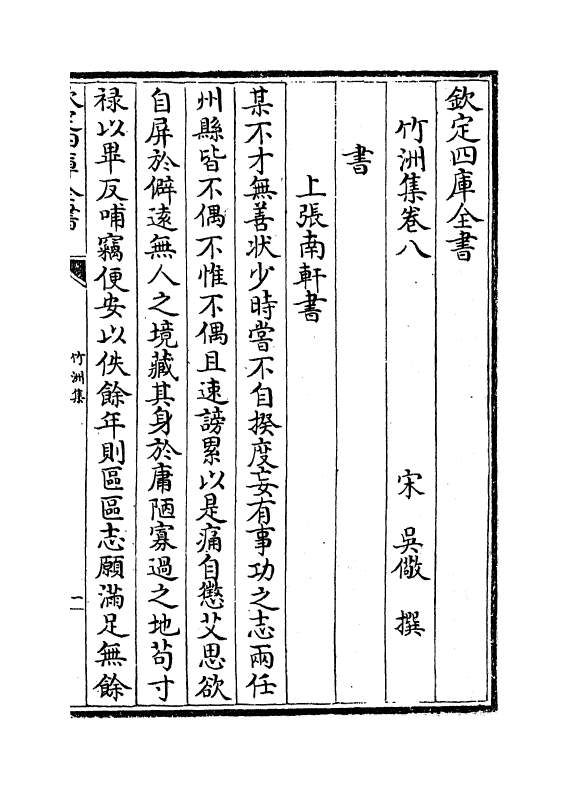 欽定四庫全書
竹洲集卷八
宋 吳儆 撰
書
上張南軒書
某不才無善狀少時嘗不自揆度妄有事功之志兩任
州縣皆不偶不惟不偶且速謗累以是痛自懲艾思欲
自屏於僻遠無人之境藏其身於庸陋寡過之地茍寸
禄以畢反哺竊便安以佚餘年則區區志願滿足無餘
欽定四庫全書
竹洲集
一